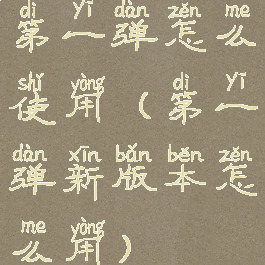 dì yī dàn zěn me
第一弹怎么
shǐ yòng dì yī
使用(第一
dàn xīn bǎn běn zěn
弹新版本怎
me yòng
么用)